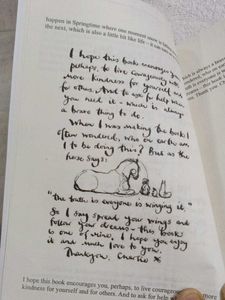 happen in Springtime where one moment snow is
the next, which is also a little bit like life – it can
I hope this book encourages you,
perhaps, to live courageously with
more kindness for yourself and
for others. And to ask for help when
you need it – which is always
a brave thing to do.
When I was making the book I
often wondered, who on earth am
I to be doing this? But as the
horse says:
"the truth is everyone is winging it."
So I say spread your wings and
follow your dreams – this book
is one of mine. I hope you enjoy
it and much love to you.
Thankyou, Charlie x
I hope this book encourages you, perhaps, to live courageously
kindness for yourself and for others. And to ask for help